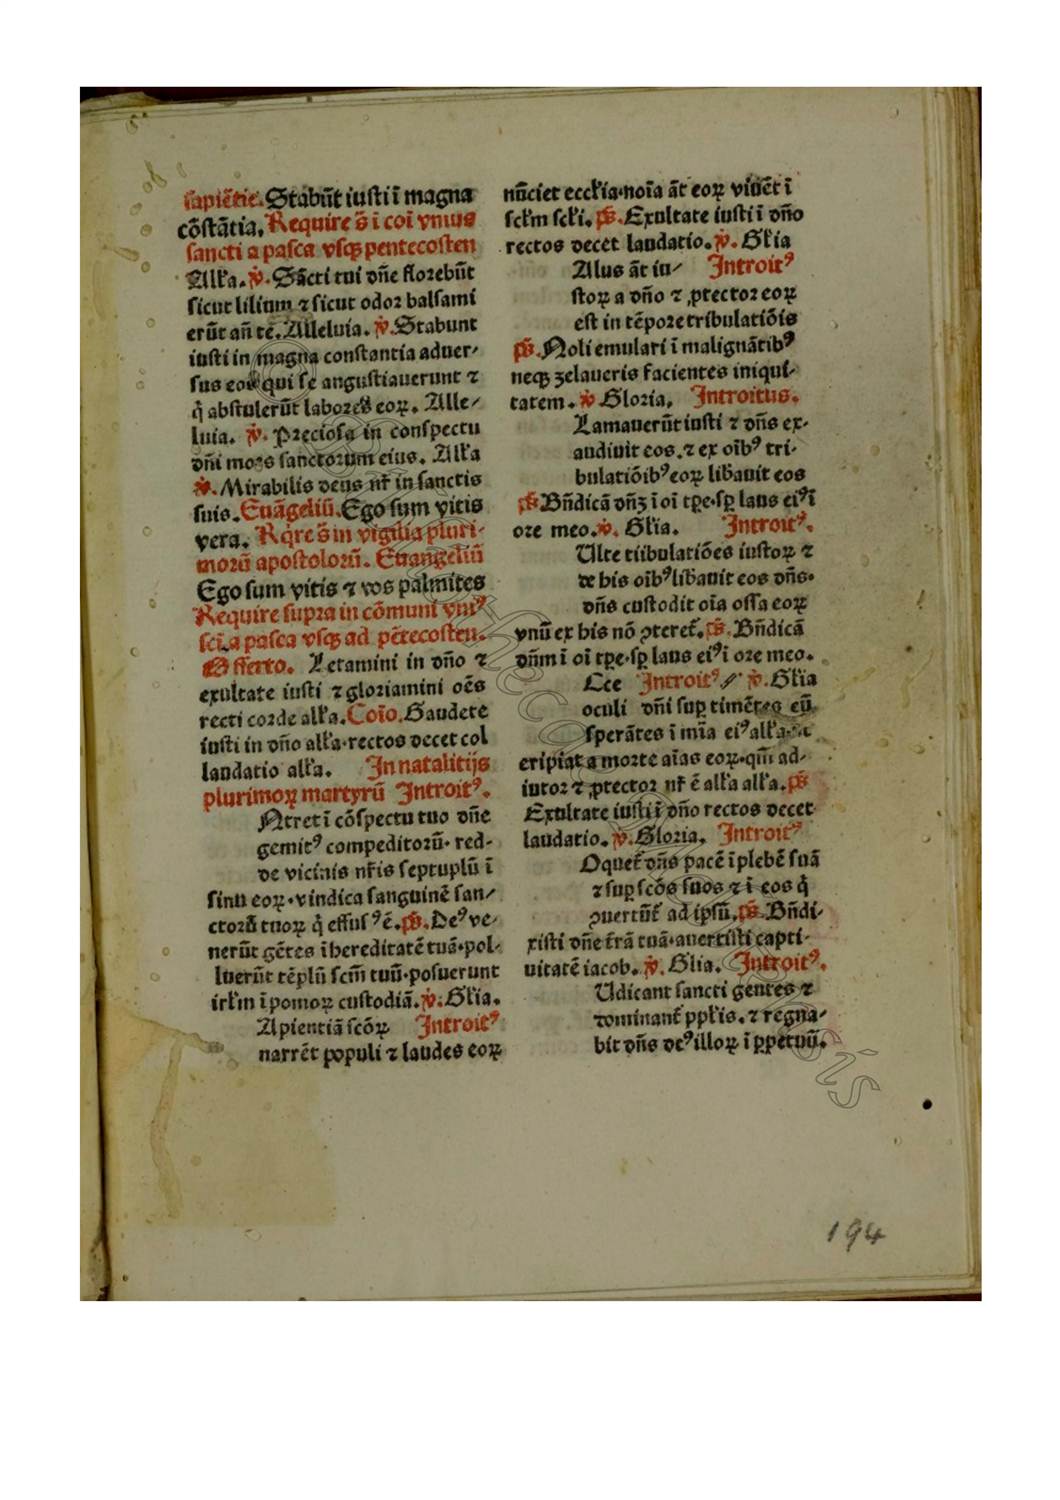 sapiẽtie. Stabũt iusti ĩ magna
cõstãtia. Require s̃ ĩ coĩ vnius
sancti a pasca vsqꝫ pentecosten
All'a. ℣. Sãcti tui dñe florebũt
sicut lilium ⁊ sicut odor balsami
erũt añ te. Alleluia. ℣. Stabunt
iusti in magna constantia aduer⸗
sus eos qui se angustiauerunt ⁊
q̇ abstulerũt labores eoꝝ. Alle⸗
luia. ℣. Preciosa in conspectu
dñi mors sanctorum eius. All'a
℣. Mirabilis deus nr̃ in sanctis
suis. Euãgeliũ. Ego sum vitis
vera. Rq̇re s̃ in vigilia pluri⸗
morũ apostolorũ. Euangeliũ
Ego sum vitis ⁊ vos palmites
Require supra in cõmuni vniꝰ
sci. a pasca vsqꝫ ad pẽtecosten.
Offerto. Letamini in dño ⁊
exultate iusti ⁊ gloriamini oẽs
recti corde all'a. Coĩo. Gaudete
iusti in dño all'a. rectos decet col
laudatio all'a. In natalitijs
plurimoꝝ martyrũ Introitꝰ.
Ntret ĩ cõspectu tuo dñe
gemitꝰ compeditorũ. red⸗
de vicinis nr̃is septuplũ ĩ
sinu eoꝝ. vindica sanguinẽ san⸗
ctorũ tuoꝝ q̇ effusꝰ ẽ. p̃s. Deꝰ ve⸗
nerũt gẽtes ĩ hereditatẽ tuã. pol⸗
luerũt tẽplũ scm̃ tuũ. posuerunt
irl'm ĩ pomoꝝ custodiã. ℣. Gl'ia.
Apientiã scõꝝ Introitꝰ
narrẽt populi ⁊ laudes eoꝝ
nũciet eccl'ia. noĩa ãt eoꝝ viuẽt ĩ
scl'm scl'i. p̃s. Exultate iusti ĩ dño
rectos decet laudatio. ℣. Gl'ia
Alus ãt iu⸗ Introitꝰ
stoꝝ a dño ⁊ ꝓtector eoꝝ
est in tẽpore tribulatiõis
p̃s. Noli emulari ĩ malignãtibꝰ
neqꝫ zelaueris facientes iniqui⸗
tatem. ℣ Gloria. Introitus.
Lamauerũt iusti ⁊ dñs ex⸗
audiuit eos. ⁊ ex oĩbꝰ tri⸗
bulatiõibꝰ eoꝝ lib̃auit eos
p̃s. Bñdicã dñꝫ ĩ oĩ tꝑe. sꝑ laus eiꝰ ĩ
ore meo. ℣. Gl'ia. Introitꝰ.
Ulte tribulatiões iustoꝝ ⁊
de his oĩbꝰ lib̃auit eos dñs.
dñs custodit oĩa ossa eoꝝ
vnũ ex his nõ ꝯteret̃. p̃s. Bñdicã
dñm ĩ oĩ tꝑe. sꝑ laus eiꝰ ĩ ore meo.
Cce Introitꝰ ℣. Gl'ia
oculi dñi suꝑ timẽtes eũ
sperãtes ĩ mĩa eiꝰ all'a.
eripiat a morte aĩas eoꝝ. qm̃ ad⸗
iutor ⁊ ꝓtector nr̃ ẽ all'a all'a. p̃s
Exultate iusti ĩ dño rectos decet
laudatio. ℣. Gloria. Introitꝰ
Oquet̃ dñs pacẽ ĩ plebẽ suã
⁊ suꝑ scõs suos ⁊ ĩ eos q̇
ꝯuertũt̃ ad ipsũ. p̃s. Bñdi⸗
xisti dñe t̃rã tuã. auertisti capti⸗
uitatẽ iacob. ℣. Glia. Introitꝰ.
Udicant sancti gentes ⁊
dominant̃ ppl'is. ⁊ regna⸗
bit dñs deꝰ illoꝝ ĩ ꝑpetuũ.
194